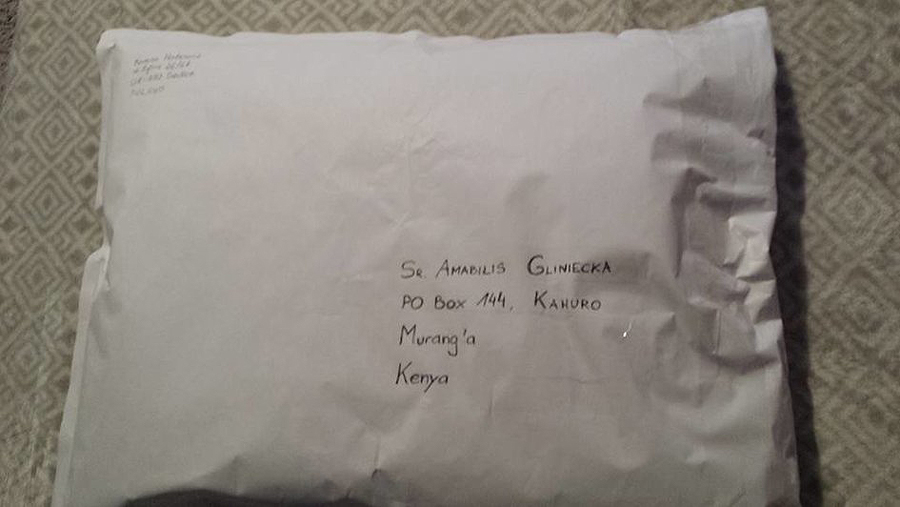 POLAND
Sr. Amabilis Gliniecka
PO Box 144, Kahuro
Murang'a
Kenya